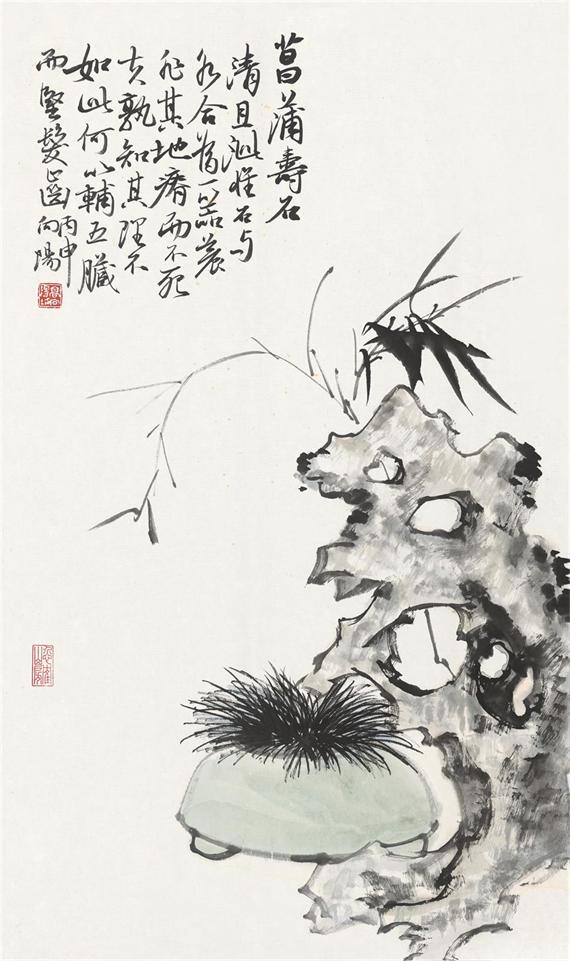 菖蒲壽石
清且泚惟石与
水合一器養
非其地瘠而不死
夫孰知其理不
如此何以輔五臟
而堅髮齒丙申
向陽